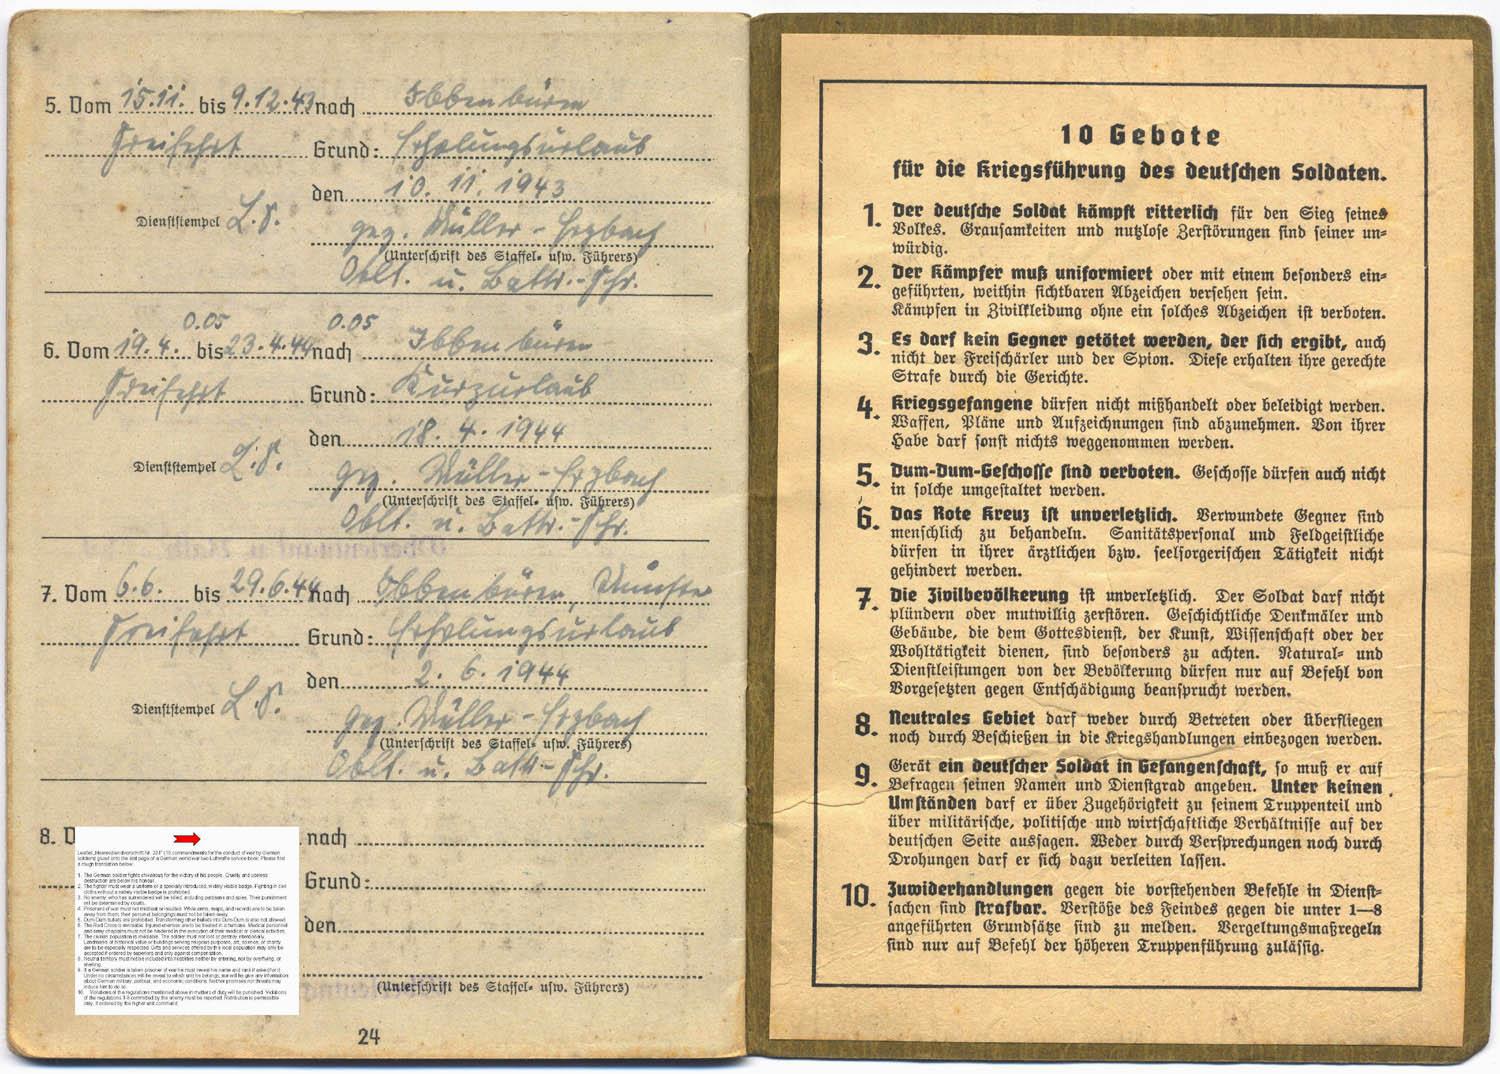 5. Vom 15.11. bis 9.12.43 nach Ibbenbüren
Freifahrt Grund: Erholungsurlaub
den 10. 11. 1943
Dienststempel L.S.
gez. Müller-Erzbach
(Unterschrift des Staffel- usw. Führers)
Oblt. u. Battr.-Fhr.
0.05 0.05
6. Vom 19.4. bis 23.4.44 nach Ibbenbüren
Freifahrt Grund: Kurzurlaub
den 18. 4. 1944
Dienststempel L.S.
gez. Müller-Erzbach
(Unterschrift des Staffel- usw. Führers)
Oblt. u. Battr.-Fhr.
7. Vom 6.6. bis 29.6.44 nach Ibbenbüren, Münster
Freifahrt Grund: Erholungsurlaub
den 2. 6. 1944
Dienststempel L.S.
gez. Müller-Erzbach
(Unterschrift des Staffel- usw. Führers)
Oblt. u. Battr.-Fhr.
8. nach
Grund:
den
(Unterschrift des Staffel- usw. Führers)
1. The German soldier fights chivalrous for the victory of his people. Cruelty and useless
destruction are below his honour.
2. The fighter must wear a uniform or a specially introduced, widely visible badge. Fighting in civil
clothes without a widely visible badge is prohibited.
24
10 Gebote
für die Kriegsführung des deutschen Soldaten.
1. Der deutsche Soldat kämpft ritterlich für den Sieg seines
Volkes. Grausamkeiten und nutzlose Zerstörungen sind seiner un-
würdig.
2. Der Kämpfer muß uniformiert oder mit einem besonders ein-
geführten, weithin sichtbaren Abzeichen versehen sein.
Kämpfen in Zivilkleidung ohne ein solches Abzeichen ist verboten.
3. Es darf kein Gegner getötet werden, der sich ergibt, auch
nicht der Freischärler und der Spion. Diese erhalten ihre gerechte
Strafe durch die Gerichte.
4. Kriegsgefangene dürfen nicht mißhandelt oder beleidigt werden.
Waffen, Pläne und Aufzeichnungen sind abzunehmen. Von ihrer
Habe darf sonst nichts weggenommen werden.
5. Dum-Dum-Geschosse sind verboten. Geschosse dürfen auch nicht
in solche umgestaltet werden.
6. Das Rote Kreuz ist unverletzlich. Verwundete Gegner sind
menschlich zu behandeln. Sanitätspersonal und Feldgeistliche
dürfen in ihrer ärztlichen bzw. seelsorgerischen Tätigkeit nicht
gehindert werden.
7. Die Zivilbevölkerung ist unverletzlich. Der Soldat darf nicht
plündern oder mutwillig zerstören. Geschichtliche Denkmäler und
Gebäude, die dem Gottesdienst, der Kunst, Wissenschaft oder der
Wohltätigkeit dienen, sind besonders zu achten. Natural- und
Dienstleistungen von der Bevölkerung dürfen nur auf Befehl von
Vorgesetzten gegen Entschädigung beansprucht werden.
8. Neutrales Gebiet darf weder durch Betreten oder Überfliegen
noch durch Beschießen in die Kriegshandlungen einbezogen werden.
9. Gerät ein deutscher Soldat in Gefangenschaft, so muß er auf
Befragen seinen Namen und Dienstgrad angeben. Unter keinen
Umständen darf er über Zugehörigkeit zu seinem Truppenteil und
über militärische, politische und wirtschaftliche Verhältnisse auf der
deutschen Seite aussagen. Weder durch Versprechungen noch durch
Drohungen darf er sich dazu verleiten lassen.
10. Zuwiderhandlungen gegen die vorstehenden Befehle in Dienst-
sachen sind strafbar. Verstöße des Feindes gegen die unter 1—8
angeführten Grundsätze sind zu melden. Vergeltungsmaßregeln
sind nur auf Befehl der höheren Truppenführung zulässig.